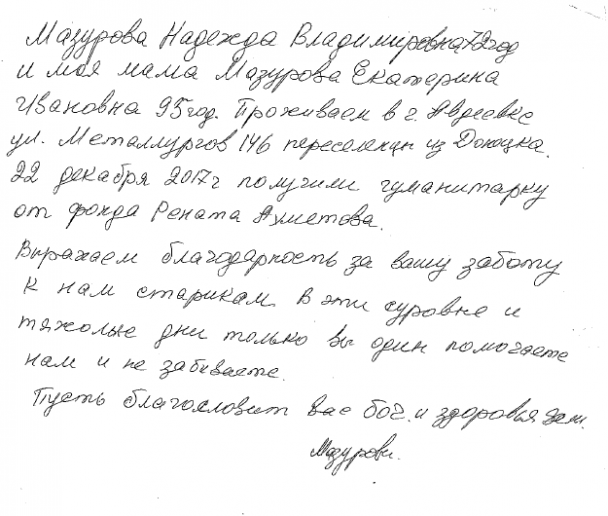 Мазурова Надежда Владимировна 72год
и моя мама Мазурова Екатерина
Ивановна 95год. Проживаем в г. Авдеевке
ул. Металлургов 146 переселенцы из Донецка.
22 декабря 2017г получили гуманитарку
от фонда Рената Ахметова.
Выражаем благодарность за вашу заботу
к нам старикам. В эти суровые и
тяжолые дни только вы один помогаете
нам и не забываете.
Пусть благословит вас бог. и здоровья вам.
Мазуровы.